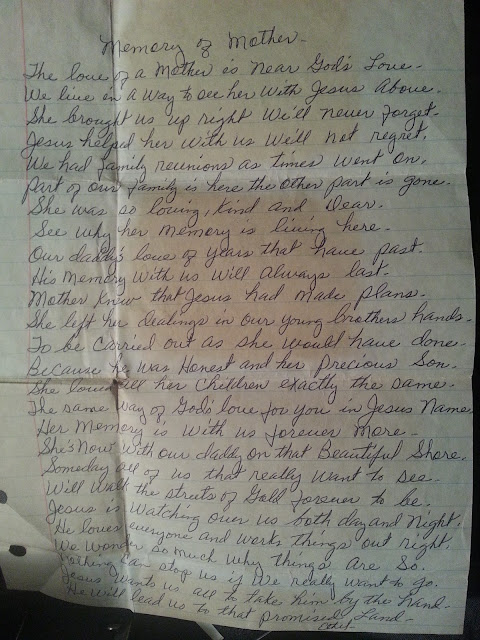 Memory of Mother-
The love of a Mother is Near God's Love-
We live in a way to see her with Jesus Above.
She brought us up right We'll never forget.
Jesus helped her with us We'll not regret.
We had family reunions as times went on.
Part of our family is here the other part is gone.
She was so loving, kind and Dear.
See why her memory is living here.
Our daddy's love of years that have past.
His Memory with us will always last.
Mother knew that Jesus had made plans.
She left her dealings in our young brothers hands.
To be carried out as she would have done-
Because he was Honest and her Precious Son.
She loved all her children exactly the same-
The same way of God's love for you in Jesus Name.
Her Memory is with us forever more-
She's Now with our daddy on that Beautiful Shore.
Someday all of us that really want to see-
Will walk the streets of Gold forever to be.
Jesus is watching over us both day and night.
He loves everyone and works things out right.
We wonder so much why things are so.
Nothing can stop us if we really want to go.
Jesus wants us all to take him by the hand-
He will lead us to that promised Land-